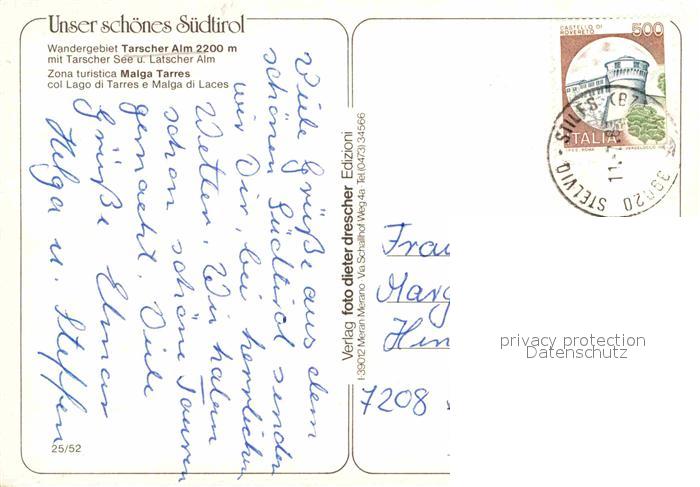 Unser schönes Südtirol
Wandergebiet Tarscher Alm 2200 m
mit Tarscher See u. Latscher Alm
Zona turistica Malga Tarres
col Lago di Tarres e Malga di Laces
Viele Grüße aus dem
schönen Südtirol senden
wir Dir, bei herrlichen
Wetter. Wir haben
schon schöne Touren
gemacht. Viele
Grüße Elmar
Helga u. Steffen
25/52
Verlag foto dieter drescher Edizioni
I-39012 Meran Merano · Via Schallhof Weg 4a · Tel. (0473) 34566
CASTELLO DI
ROVERETO
500
ITALIA
39020 STELVIO - STILFS (BZ)
Frau
Marg
Hin
7208
privacy protection
Datenschutz